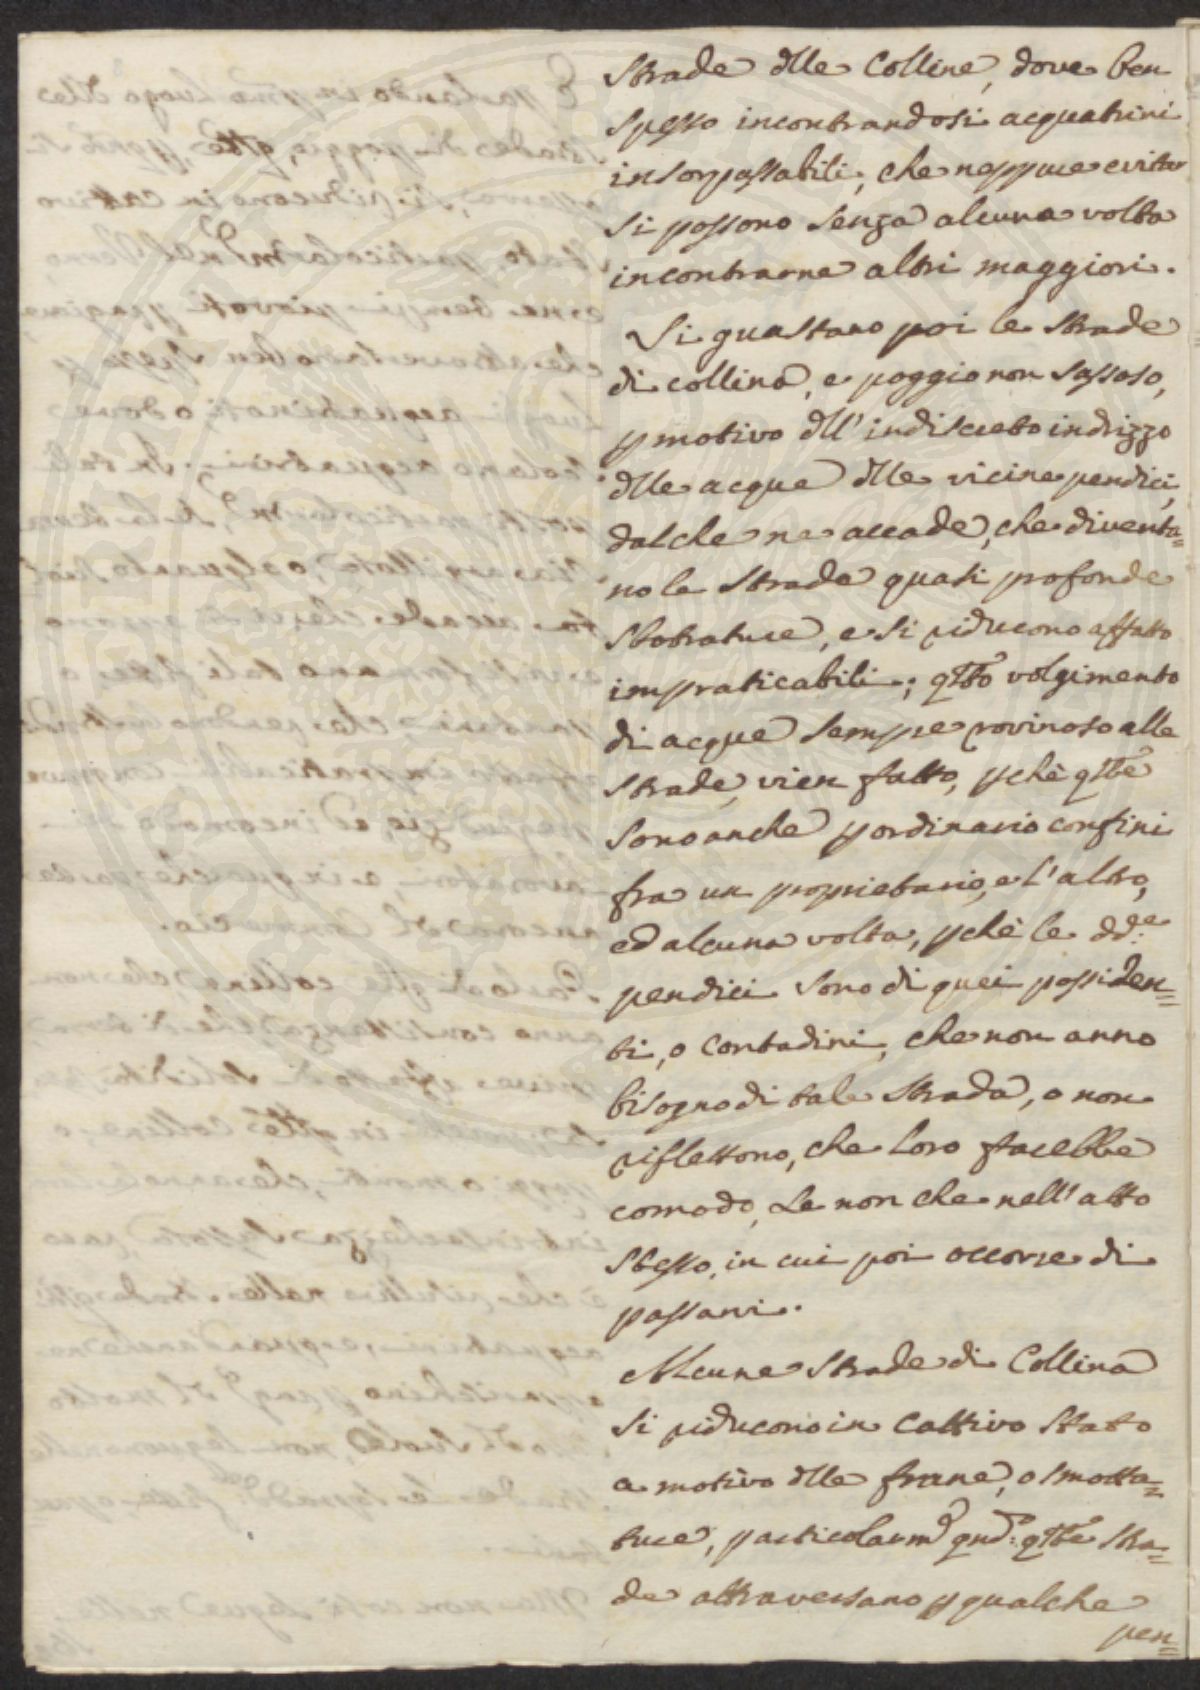 Strade dlle Colline, dove ben
spesso incontrandosi acquatrini
insorpassabili, che neppure evitar
si possono senza alcuna volta
incontrarne altri maggiori.
Si guastano poi le strade
di collina, e poggio non sassoso,
p motivo dll' indiscreto indrizzo
dlle acque dlle vicine pendici,
dal che ne accade, che diventa=
no le strade quasi profonde
stotrature, e si riducono affatto
impraticabili; qsto volgimento
di acque sempre rovinoso alle
strade, vien fatto, pchè qste
sono anche p ordinario confini
fra un proprietario, e l'altro,
ed alcuna volta, pchè le dd.e
pendici sono di quei possiden=
ti, o contadini, che non anno
bisogno di tale strada, o non
riflettono, che loro farebbe
comodo, se non che nell'atto
stesso, in cui poi occorre di
passarvi.
Alcune strade di Collina
si riducono in cattivo stato
a motivo dlle frane, o smotta=
ture, particolarm.e qnd: qste stra=
de attraversano p qualche
pen=